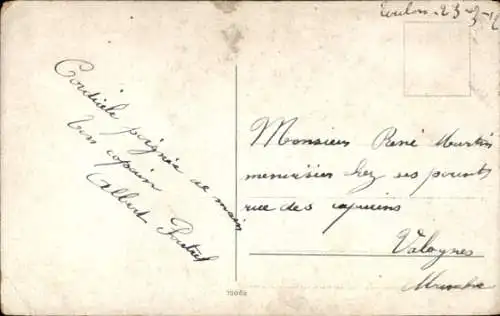 Toulon 23-3-12
Cordiale poignée de main
Ton copain
Albert
Monsieur René Martin
menuisier chez ses parents
rue des capucins
Valognes
Manche